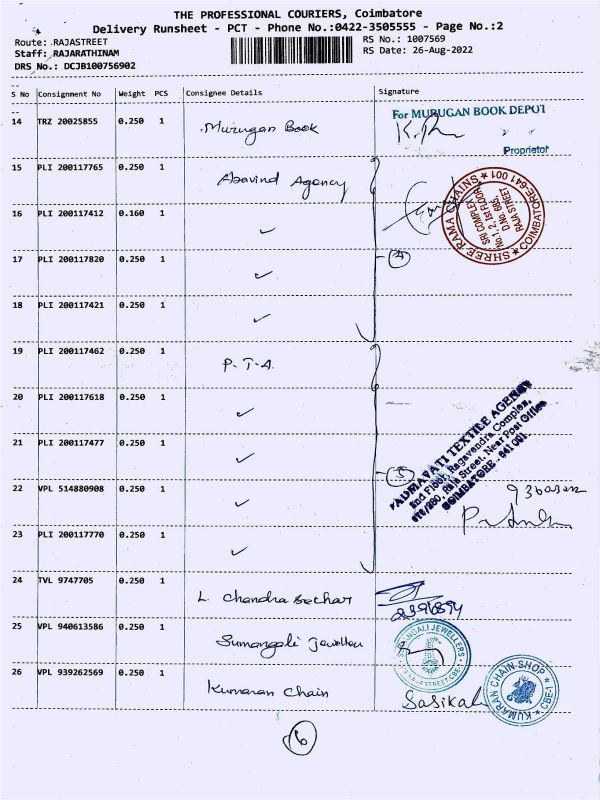 THE PROFESSIONAL COURIERS, Coimbatore
Delivery Runsheet - PCT - Phone No.:0422-3505555 - Page No.:2
Route: RAJASTREET
RS No.: 1007569
Staff: RAJARATHINAM
RS Date: 26-Aug-2022
DRS No.: DCJB100756902
S No Consignment No Weight PCS Consignee Details Signature
14 TRZ 20025855 0.250 1 Murugan Book
For MURUGAN BOOK DEPOT
Proprietor
15 PLI 200117765 0.250 1 Aravind Agency
SHREE RAMA CHAINS ★ COIMBATORE-641 001 ★
SRI COMPLEX
No.1, 2, 1ST FLOOR
D.No. 685,
RAJA STREET
16 PLI 200117412 0.160 1 ✓
17 PLI 200117820 0.250 1 ✓
4
18 PLI 200117421 0.250 1 ✓
19 PLI 200117462 0.250 1 P.T.A.
20 PLI 200117618 0.250 1 ✓
21 PLI 200117477 0.250 1 ✓
5
PADMAVATI TEXTILE AGENCY
2nd Floor, Ragavendra Complex,
Raja Street, Near Post Office
COIMBATORE - 641 001.
22 VPL 514880908 0.250 1 ✓
23 PLI 200117770 0.250 1 ✓
24 TVL 9747705 0.250 1 L. Chandra Sechar
25 VPL 940613586 0.250 1 Sumangali Jewellers
26 VPL 939262569 0.250 1 Kumaran Chain
Sasikala
KUMARAN CHAIN SHOP ★ CBE-1 ★